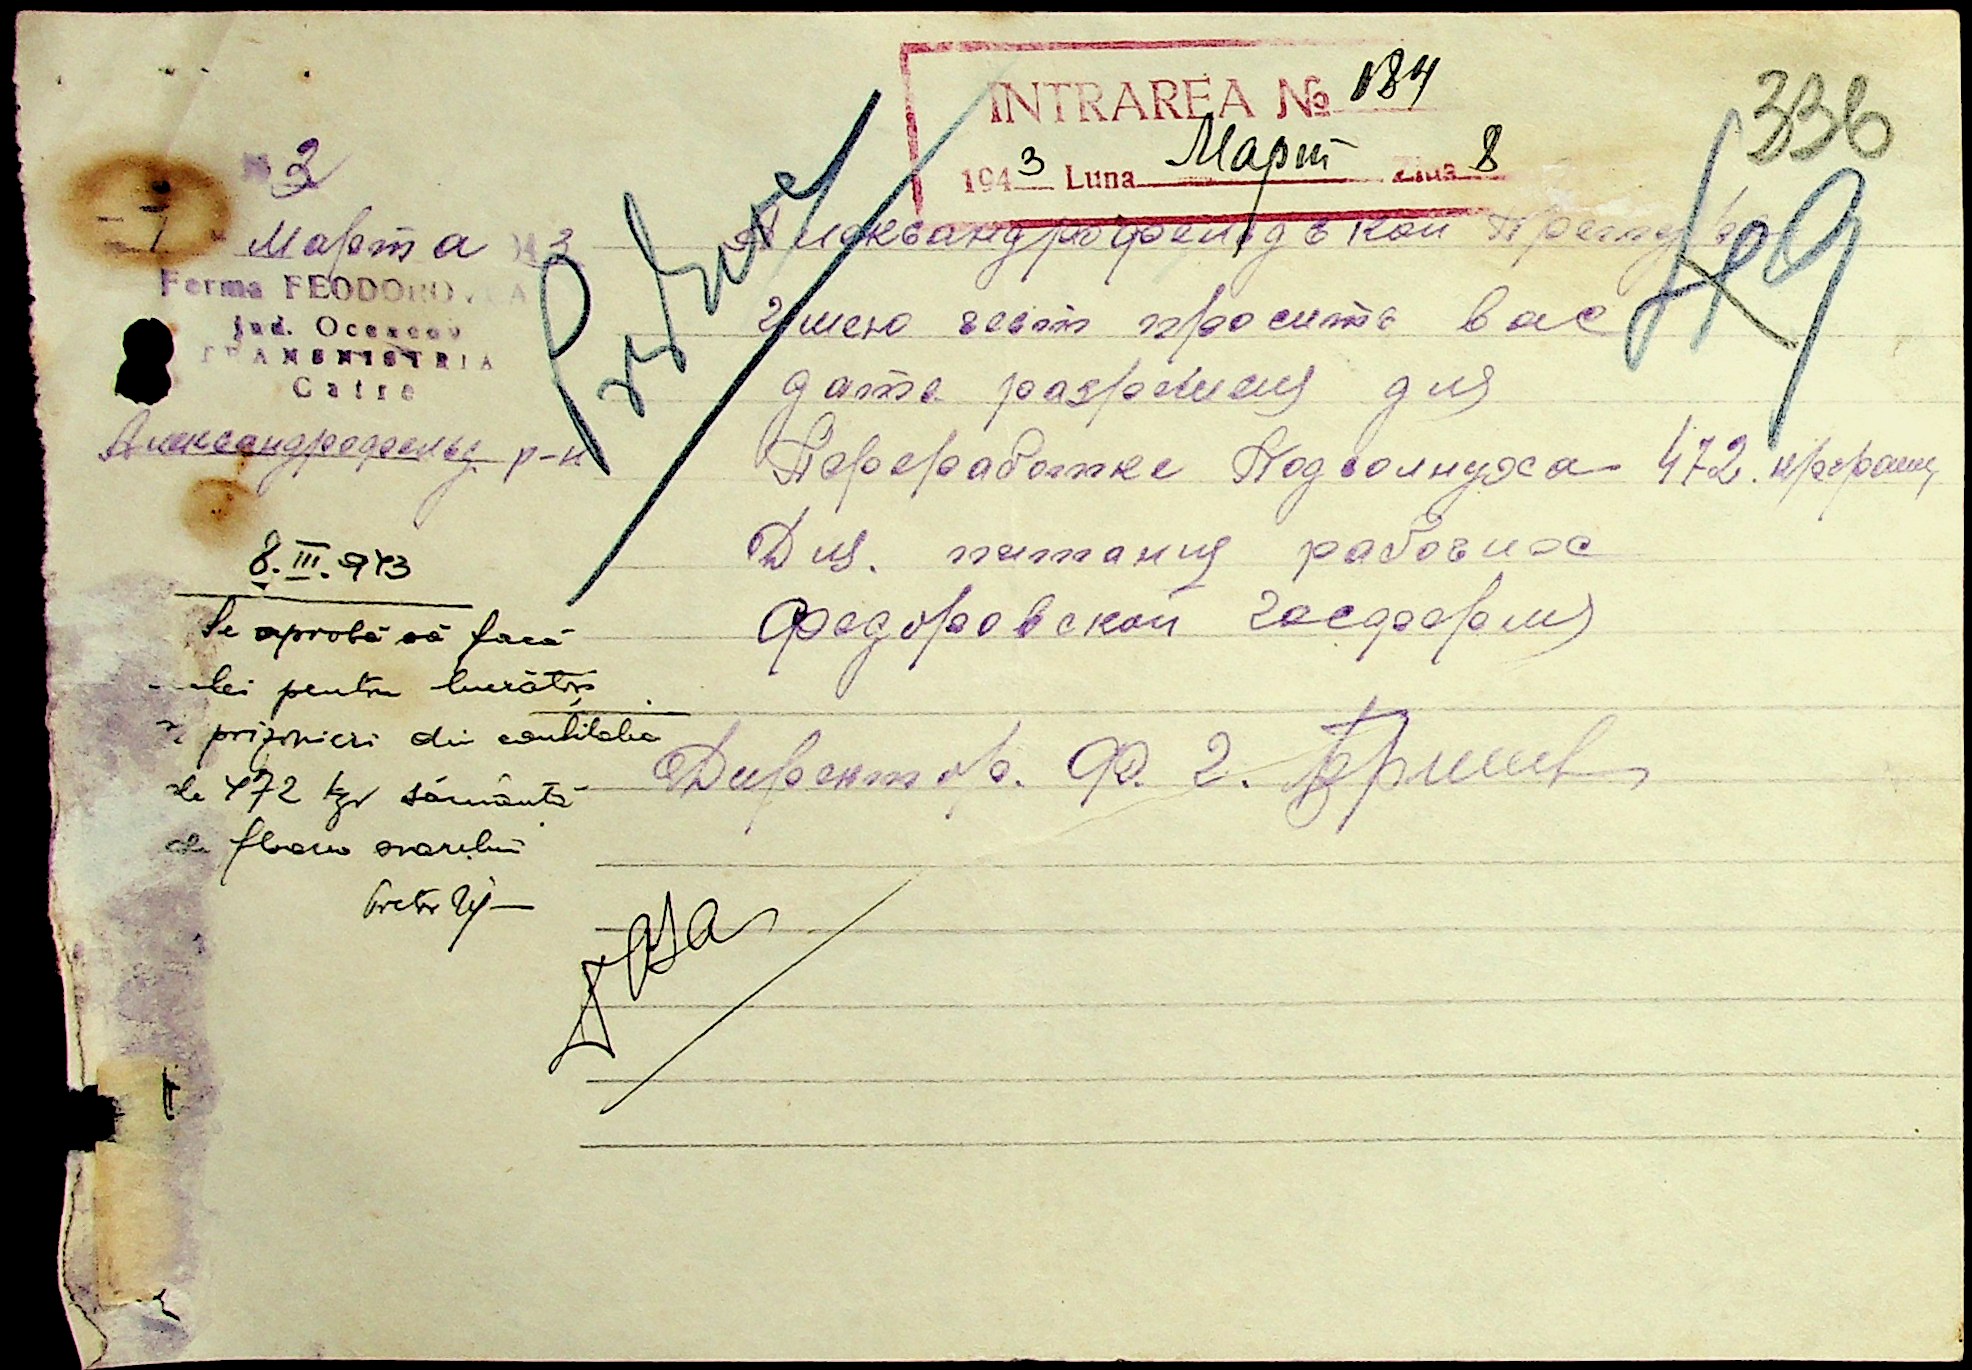 INTRAREA № 184
1943 Luna Март Ziua 8
336
№ 3
7 Марта 943
Ferma FEODOROVCA
jud. Oceacov
TRANSNISTRIA
Catre
Александрофельд р-н
Александрофельдъкой
Имею чест просить вас
дать разрешия для
Переработке Подсолнуха 472.
Для. питания рабочих
Федоровской госфермы
Директор. Ф. Г.
8.III.943
Se aprobă să facă
ulei pentru lucrători
și prizonieri din cantitatea
de 472 kgr sămânță
de floarea soarelui
Pretor